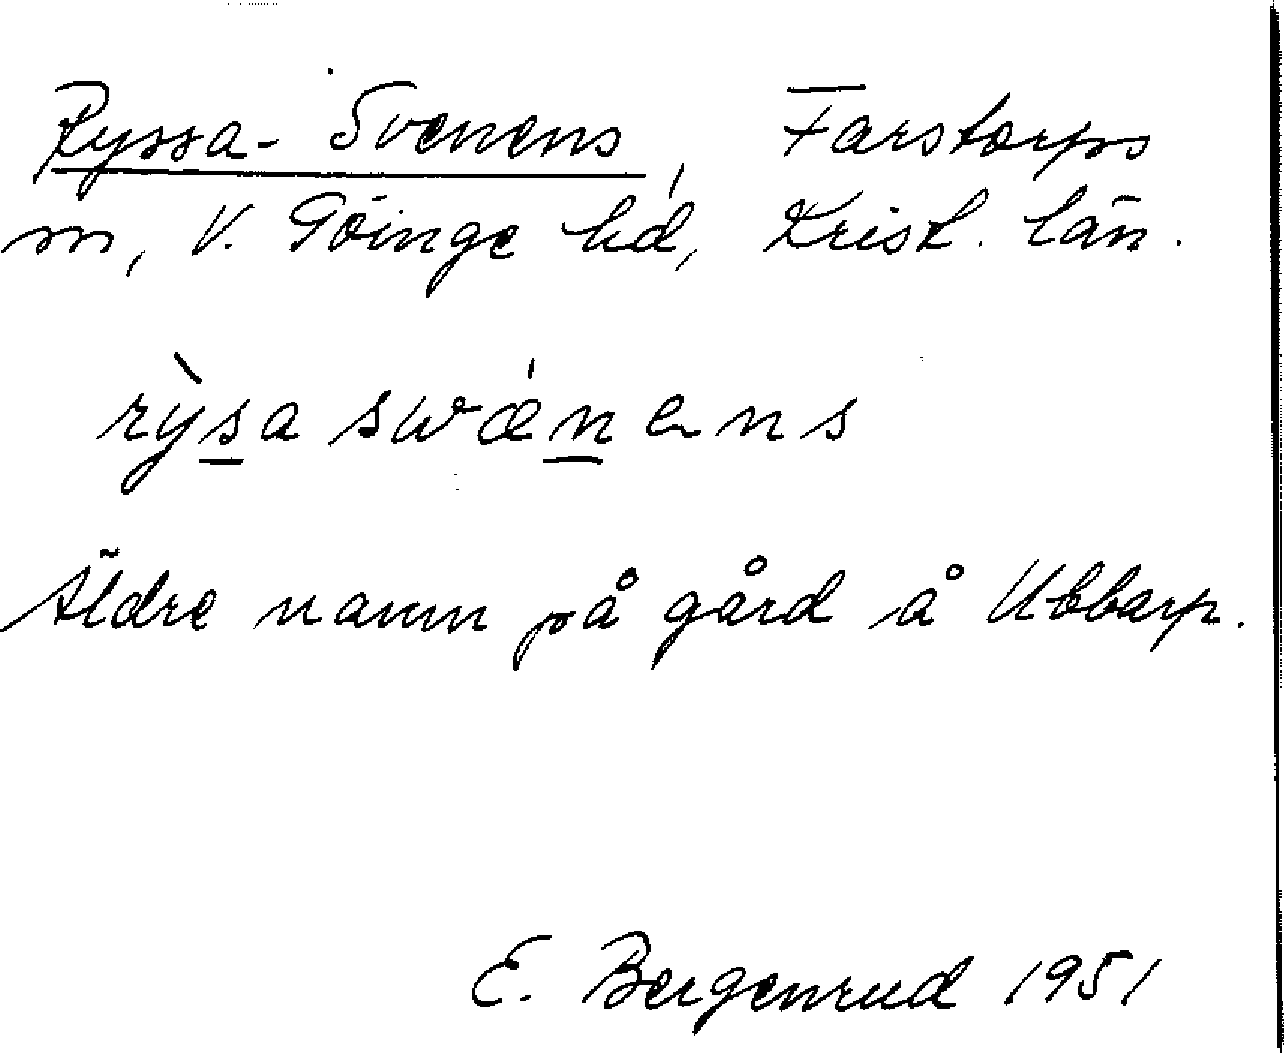 Ryssa-Svenens, Farstorps
sn, V. Göinge hd, Krist. län.
rỳsa swǽnens
Äldre namn på gård å Ubbarp.
E. Bergenrud 1951